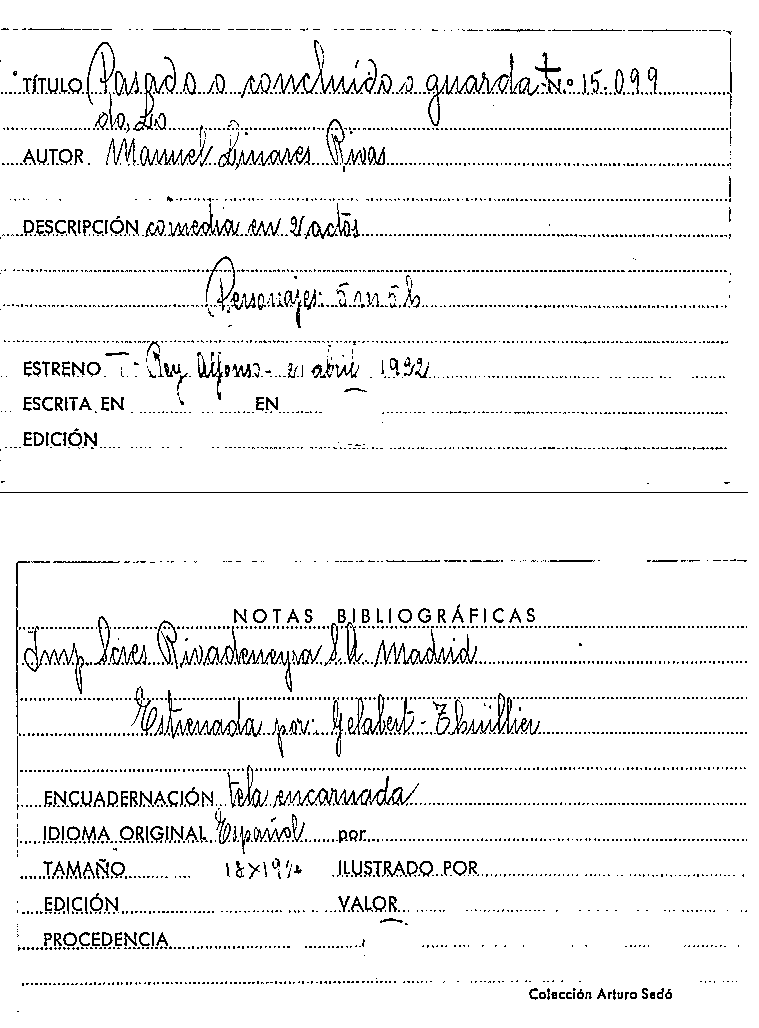 TÍTULO Pasado o concluido o guarda N.o 15.099
do, Lo
AUTOR. Manuel Linares Rivas
DESCRIPCIÓN comedia en 2 actos
Personajes: 5 m 5 h
ESTRENO T- Rey Alfonso- 21 abril 1932
ESCRITA EN EN
EDICIÓN
NOTAS BIBLIOGRÁFICAS
Imp Sores Rivadeneyra S.A. Madrid
Estrenada por: Gelabert-Thuillier
ENCUADERNACIÓN tela encarnada
IDIOMA ORIGINAL Español por
TAMAÑO ILUSTRADO POR
EDICIÓN VALOR
PROCEDENCIA
Colección Arturo Sedó